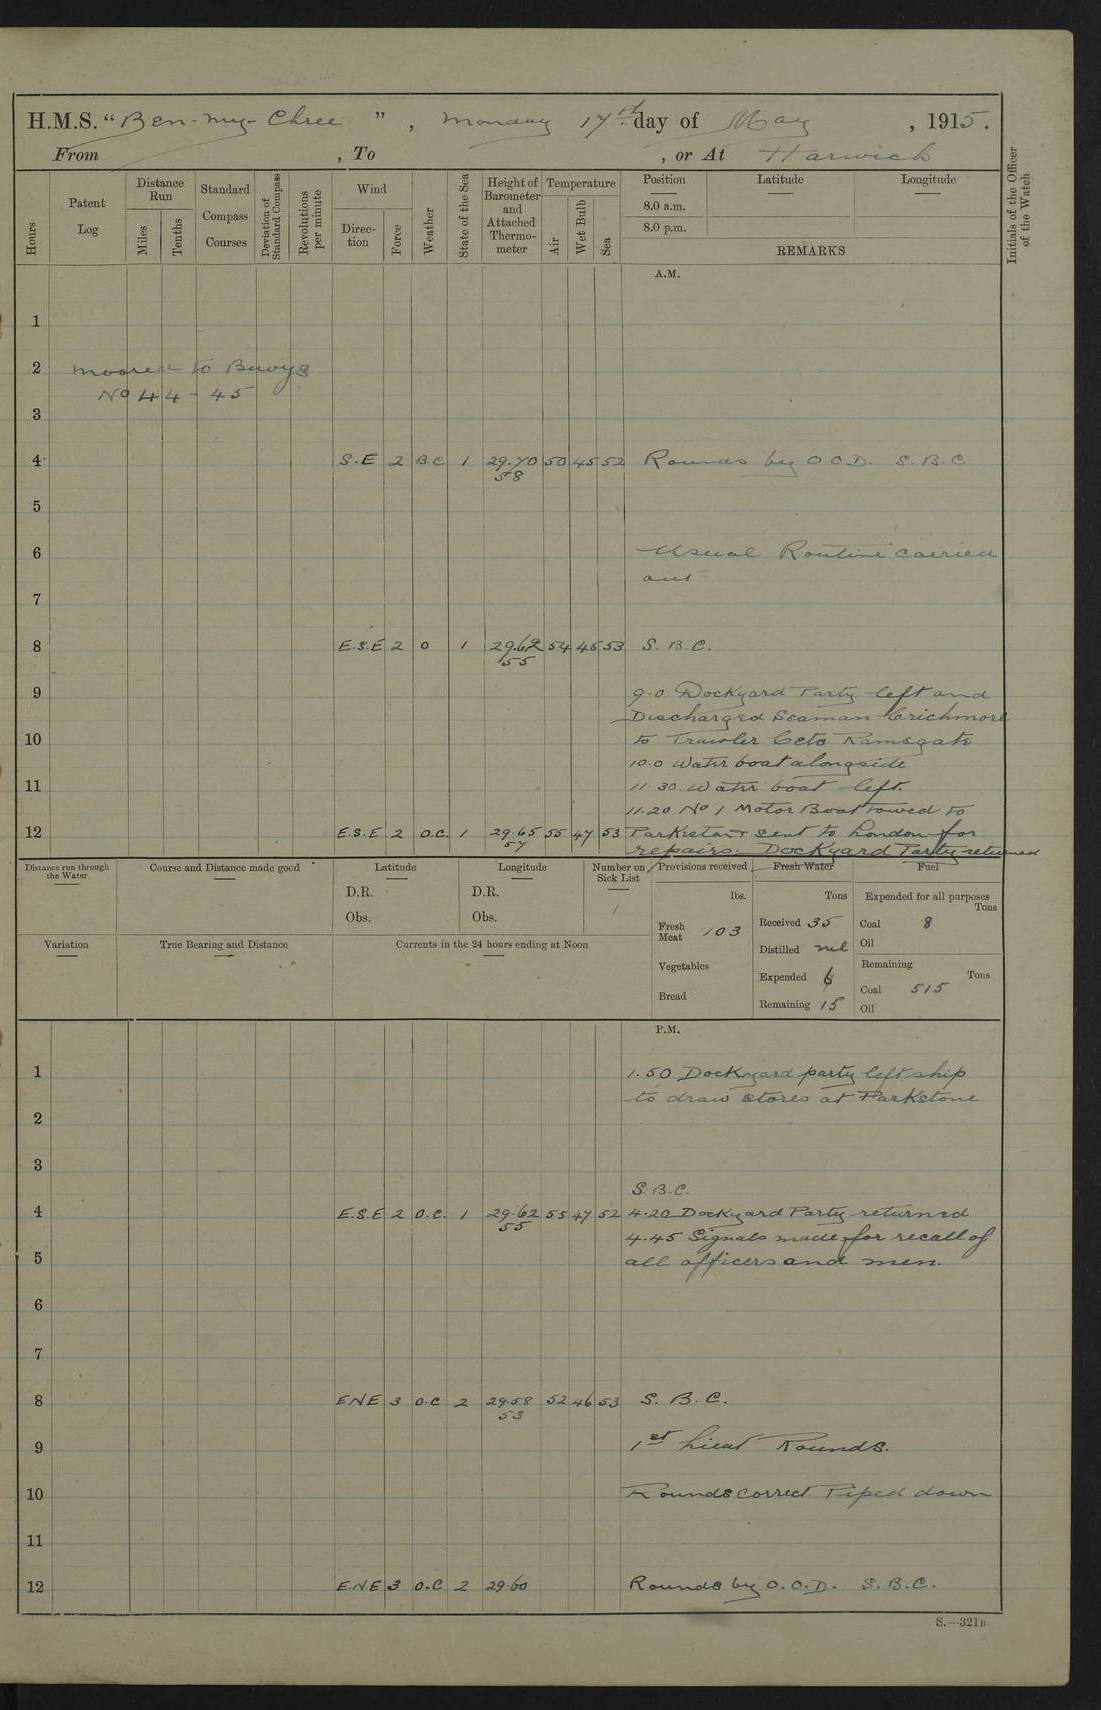 H.M.S. "Ben-my-Chree", Monday 17th day of May, 1915.
From , To , or At Harwich
Hours
Patent Log
Distance Run
Miles
Tenths
Standard Compass Courses
Deviation of Standard Compass
Revolutions per minute
Wind
Direction
Force
Weather
State of the Sea
Height of Barometer and Attached Thermometer
Temperature
Air
Wet Bulb
Sea
Position
8.0 a.m.
8.0 p.m.
Latitude
Longitude
REMARKS
Initials of the Officer of the Watch
A.M.
1
2 Moored to Buoys
No 44 - 45
3
4 S.E 2 B.C 1 29.70 50 45 52 Rounds by O O D. S. B. C
58
5
6 Usual Routine carried
out
7
8 E.S.E 2 O 1 29.62 54 46 53 S. B. C.
55
9 9.0 Dockyard Party left and
Discharged Seaman
10 to Trawler Ceto Ramsgate
10.0 Water boat alongside
11 11.30 Water boat left.
11.20 No 1 Motor Boat towed to
12 E.S.E 2 O.C. 1 29.65 55 47 53 sent to London for
57
repairs. Dockyard Party returned
Distance run through the Water
Course and Distance made good
Latitude
D.R.
Obs.
Longitude
D.R.
Obs.
Number on Sick List
1
Provisions received
lbs.
Fresh Meat 103
Vegetables
Bread
Fresh Water
Tons
Received 35
Distilled nil
Expended 6
Remaining 15
Fuel
Expended for all purposes
Tons
Coal 8
Oil
Remaining
Tons
Coal 515
Oil
Variation
True Bearing and Distance
Currents in the 24 hours ending at Noon
P.M.
1 1.50 Dockyard party left ship
to draw stores at Parkstone
2
3
S.B.C.
4 E.S.E 2 O.C. 1 29.62 55 47 52 4.20 Dockyard Party returned
55
4.45 Signals made for recall of
5 all officers and men.
6
7
8 ENE 3 O.C 2 29.58 52 46 53 S. B. C.
53
9 1st Lieut Rounds.
10 Rounds correct. Piped down
11
12 E.N.E 3 O.C 2 29.60 Rounds by O.O.D. S.B.C.
S.—321B